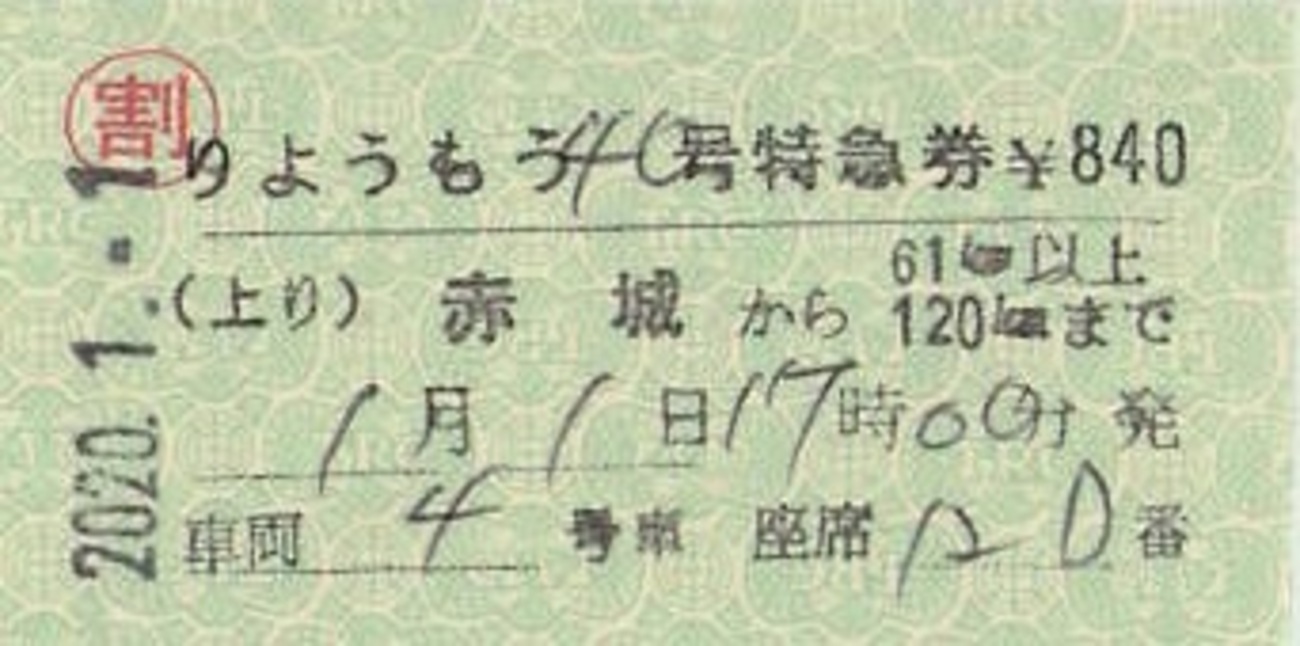 割
りょうもう40号特急券¥840
(上り) 赤城から 61km以上
120kmまで
1月1日17時00分発
車両 4 号車 座席 12 D番
2020.1.-1